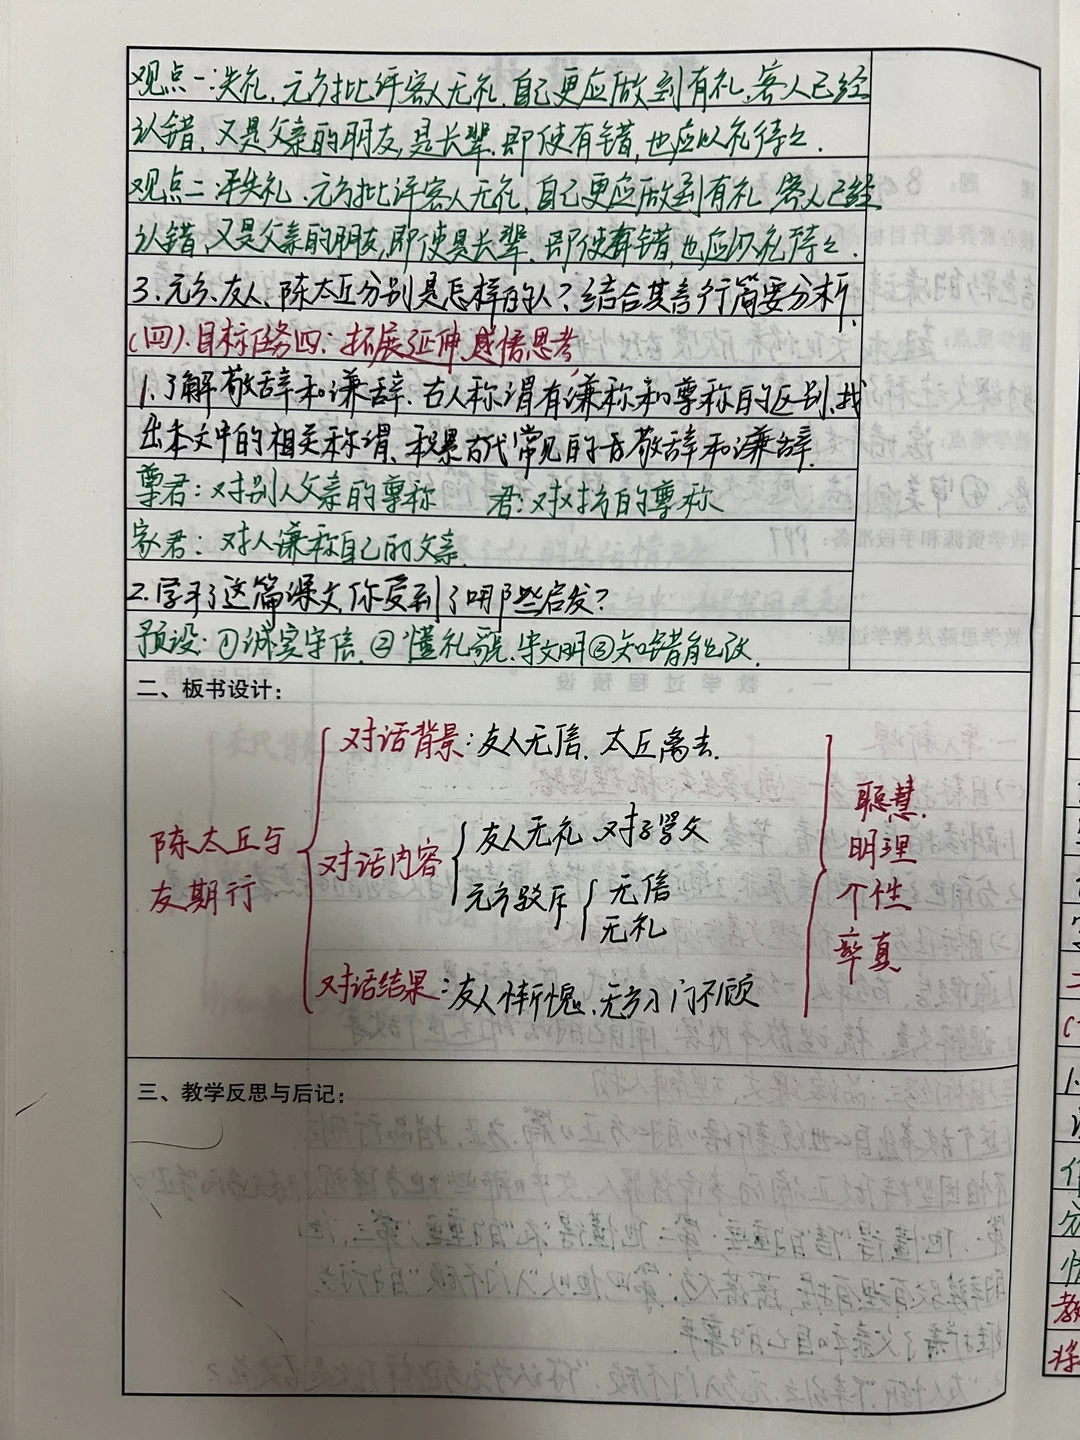 观点一:失礼,元方批评客人无礼,自己更应做到有礼,客人已经
认错,又是父亲的朋友,是长辈,即使有错,也应以礼待之.
观点二:不失礼.元方批评客人无礼,自己更应做到有礼,客人已经
认错,又是父亲的朋友,即使是长辈,即使有错,也应以礼待之.
3.元方、友人、陈太丘分别是怎样的人?结合其言行简要分析.
(四).目标任务四:拓展延伸,感悟思考
1.了解敬辞和谦辞.古人称谓有谦称和尊称的区别,找
出本文中的相关称谓,积累古代常见的敬辞和谦辞.
尊君:对别人父亲的尊称 君:对对方的尊称
家君:对人谦称自己的父亲
2.学习了这篇课文,你受到了哪些启发?
预设:①诚实守信 ②懂礼貌.讲文明③知错能改.
二、板书设计:
陈太丘与
友期行
对话背景:友人无信.太丘离去.
对话内容
友人无礼.对子骂父
元方驳斥
无信
无礼
对话结果:友人惭愧.元方入门不顾
聪慧.
明理
个性
率真
三、教学反思与后记: